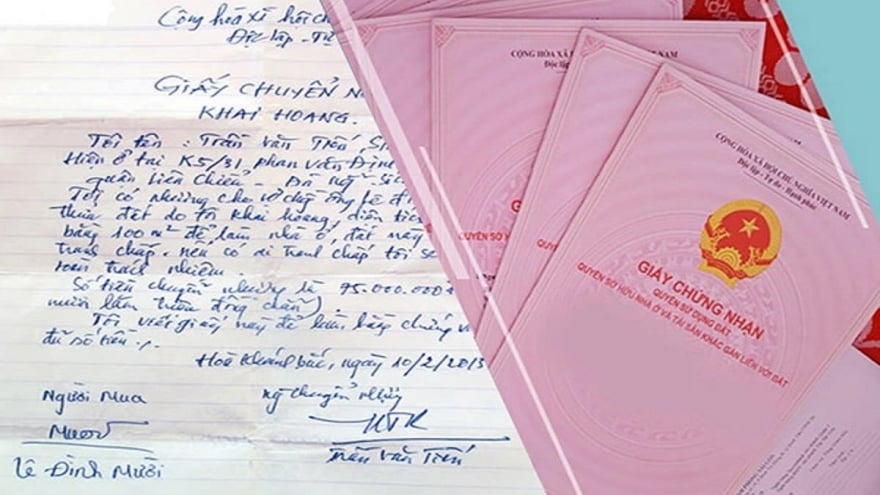 Cộng hòa xã hội ch
Độc lập - Tự
GIẤY CHUYỂN N
KHAI HOANG.
Tôi tên : Trần Văn Tiến, S
Hiện ở tại K5/31, phan Văn Định
quận Liên Chiểu - Đà nẵng
Tôi có nhường cho vợ chồng ông Lê Đ
thửa đất do tôi khai hoang, diện tíc
bằng 100m² để làm nhà ở, đất này
tranh chấp. nếu có di tranh chấp tôi sẽ
toàn trách nhiệm.
Số tiền chuyển nhường là 75.000.000
mươi lăm triệu đồng chẵn)
Tôi viết giấy này để làm bằng chứng v
đủ số tiền.
Hoà Khánh bắc, ngày 10/2/2013
Người Mua
Mười
Lê Đình Mười
chuyển nhường
Trần Văn Tiến
CỘNG HÒA XÃ HỘI VIỆT NAM
Độc lập
QUYỀN SỞ
CỘNG HÒA XÃ HỘI CHỦ NGHĨA VIỆT NAM
Độc lập - Tự do - Hạnh phúc
GIẤY CHỨNG NHẬN
QUYỀN SỬ DỤNG ĐẤT
QUYỀN SỞ HỮU NHÀ Ở VÀ TÀI SẢN KHÁC GẮN LIỀN VỚI ĐẤT